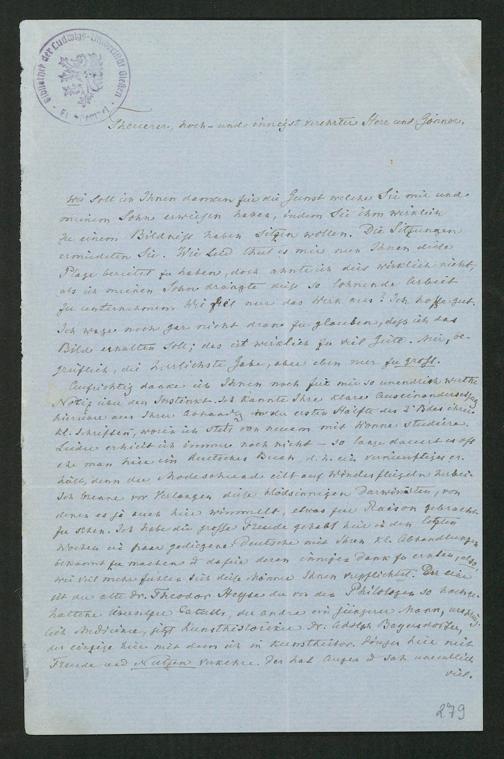 Bibliothek der Ludwigs-Universität Gießen
Theurer, hoch- und innigst verehrter Herr und Gönner,
Wie soll ich Ihnen danken für die Gunst welche Sie mir und
meinem Sohne erwiesen haben, indem Sie ihm wirklich
zu einem Bildniß haben sitzen wollen. Die Sitzungen
ermüdeten Sie. Wie Leid thut es mir nun Ihnen diese
Plage bereitet zu haben, doch ahnte ich dies wirklich nicht,
als ich meinen Sohn drängte diese so lohnende Arbeit
zu unternehmen. Wie fiel nur das Werk aus? Ich hoffe gut.
Ich wage noch gar nicht dran zu glauben, daß ich das
Bild erhalten soll; das ist wirklich zu viel Güte. Mir, be-
greiflich, die herrlichste Gabe, aber eben nur zu groß.
Aufrichtig danke ich Ihnen noch für mir so unendlich werthe
Notiz über den Instinkt. Ich kannte Ihre klare Auseinandersetzung
hierüber aus Ihrer Abhandlg in der ersten Hälfte des 2t Bdes Ihrer
kl. Schriften, worin ich stets von neuem mit Wonne studiere.
Leider erhielt ich immer noch nicht – so lange dauert es oft
ehe man hier ein deutsches Buch, d. h. ein vernünftiges er-
hält, denn die Modeschund eilt auf Windesflügeln herbei.
Ich brenne vor Verlangen diese blödsinnigen Darwinisten, von
denen es ja auch hier wimmelt, etwas zur Raison gebracht
zu sehen. Ich habe die große Freude gehabt hier in den letzten
Wochen ein paar gediegene Deutsche mit Ihren kl. Abhandlungen
bekannt zu machen & dafür deren innigen Dank zu ernten,
wie viel mehr fühlen sich diese Männer Ihnen verpflichtet. Der eine
ist der alte Dr. Theodor Heyse der von den Philologen so hochge-
haltene Übersetzer Catulls, der andre ein jüngerer Mann, ursprüng-
lich Mediciner, jetzt Kunsthistoriker Dr. Adolph Bayersdorfer,
der einzige hier mit dem ich in Kunsthistor. Dingen hier mit
Freude und Nutzen verkehre. Der hat Augen & sah unendlich
viel.
279